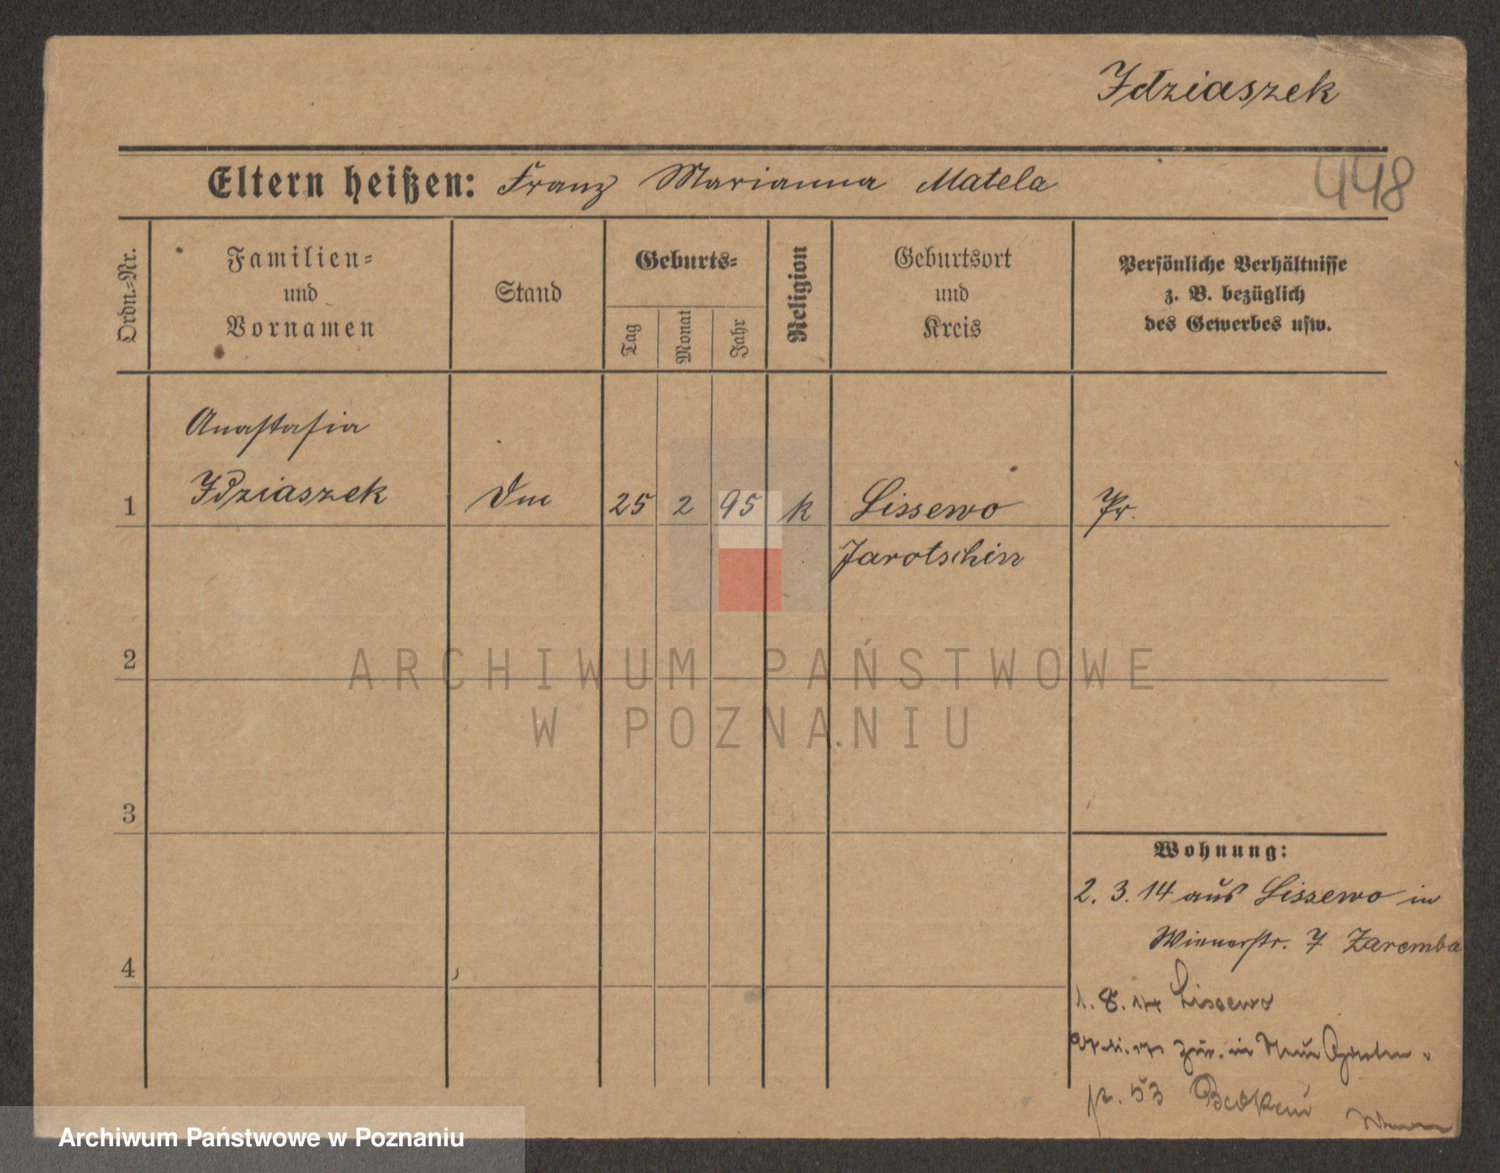 Idziaszek
448
Eltern heißen: Franz Marianna Matela
Ordn.-Nr.
Familien-
und
Vornamen
Stand
Geburts-
Tag
Monat
Jahr
Religion
Geburtsort
und
Kreis
Persönliche Verhältnisse
z. B. bezüglich
des Gewerbes usw.
Anastasia
1 Idziaszek 25 2 95 k Lissewo Pr.
Jarotschin
2
3
4
Wohnung:
2. 3. 14 aus Lissewo in
Wienerstr. 7 Zaremba
1. 8. 14 Lissewo
zur. in Neue Garten
53
ARCHIWUM PAŃSTWOWE
W POZNANIU
Archiwum Państwowe w Poznaniu